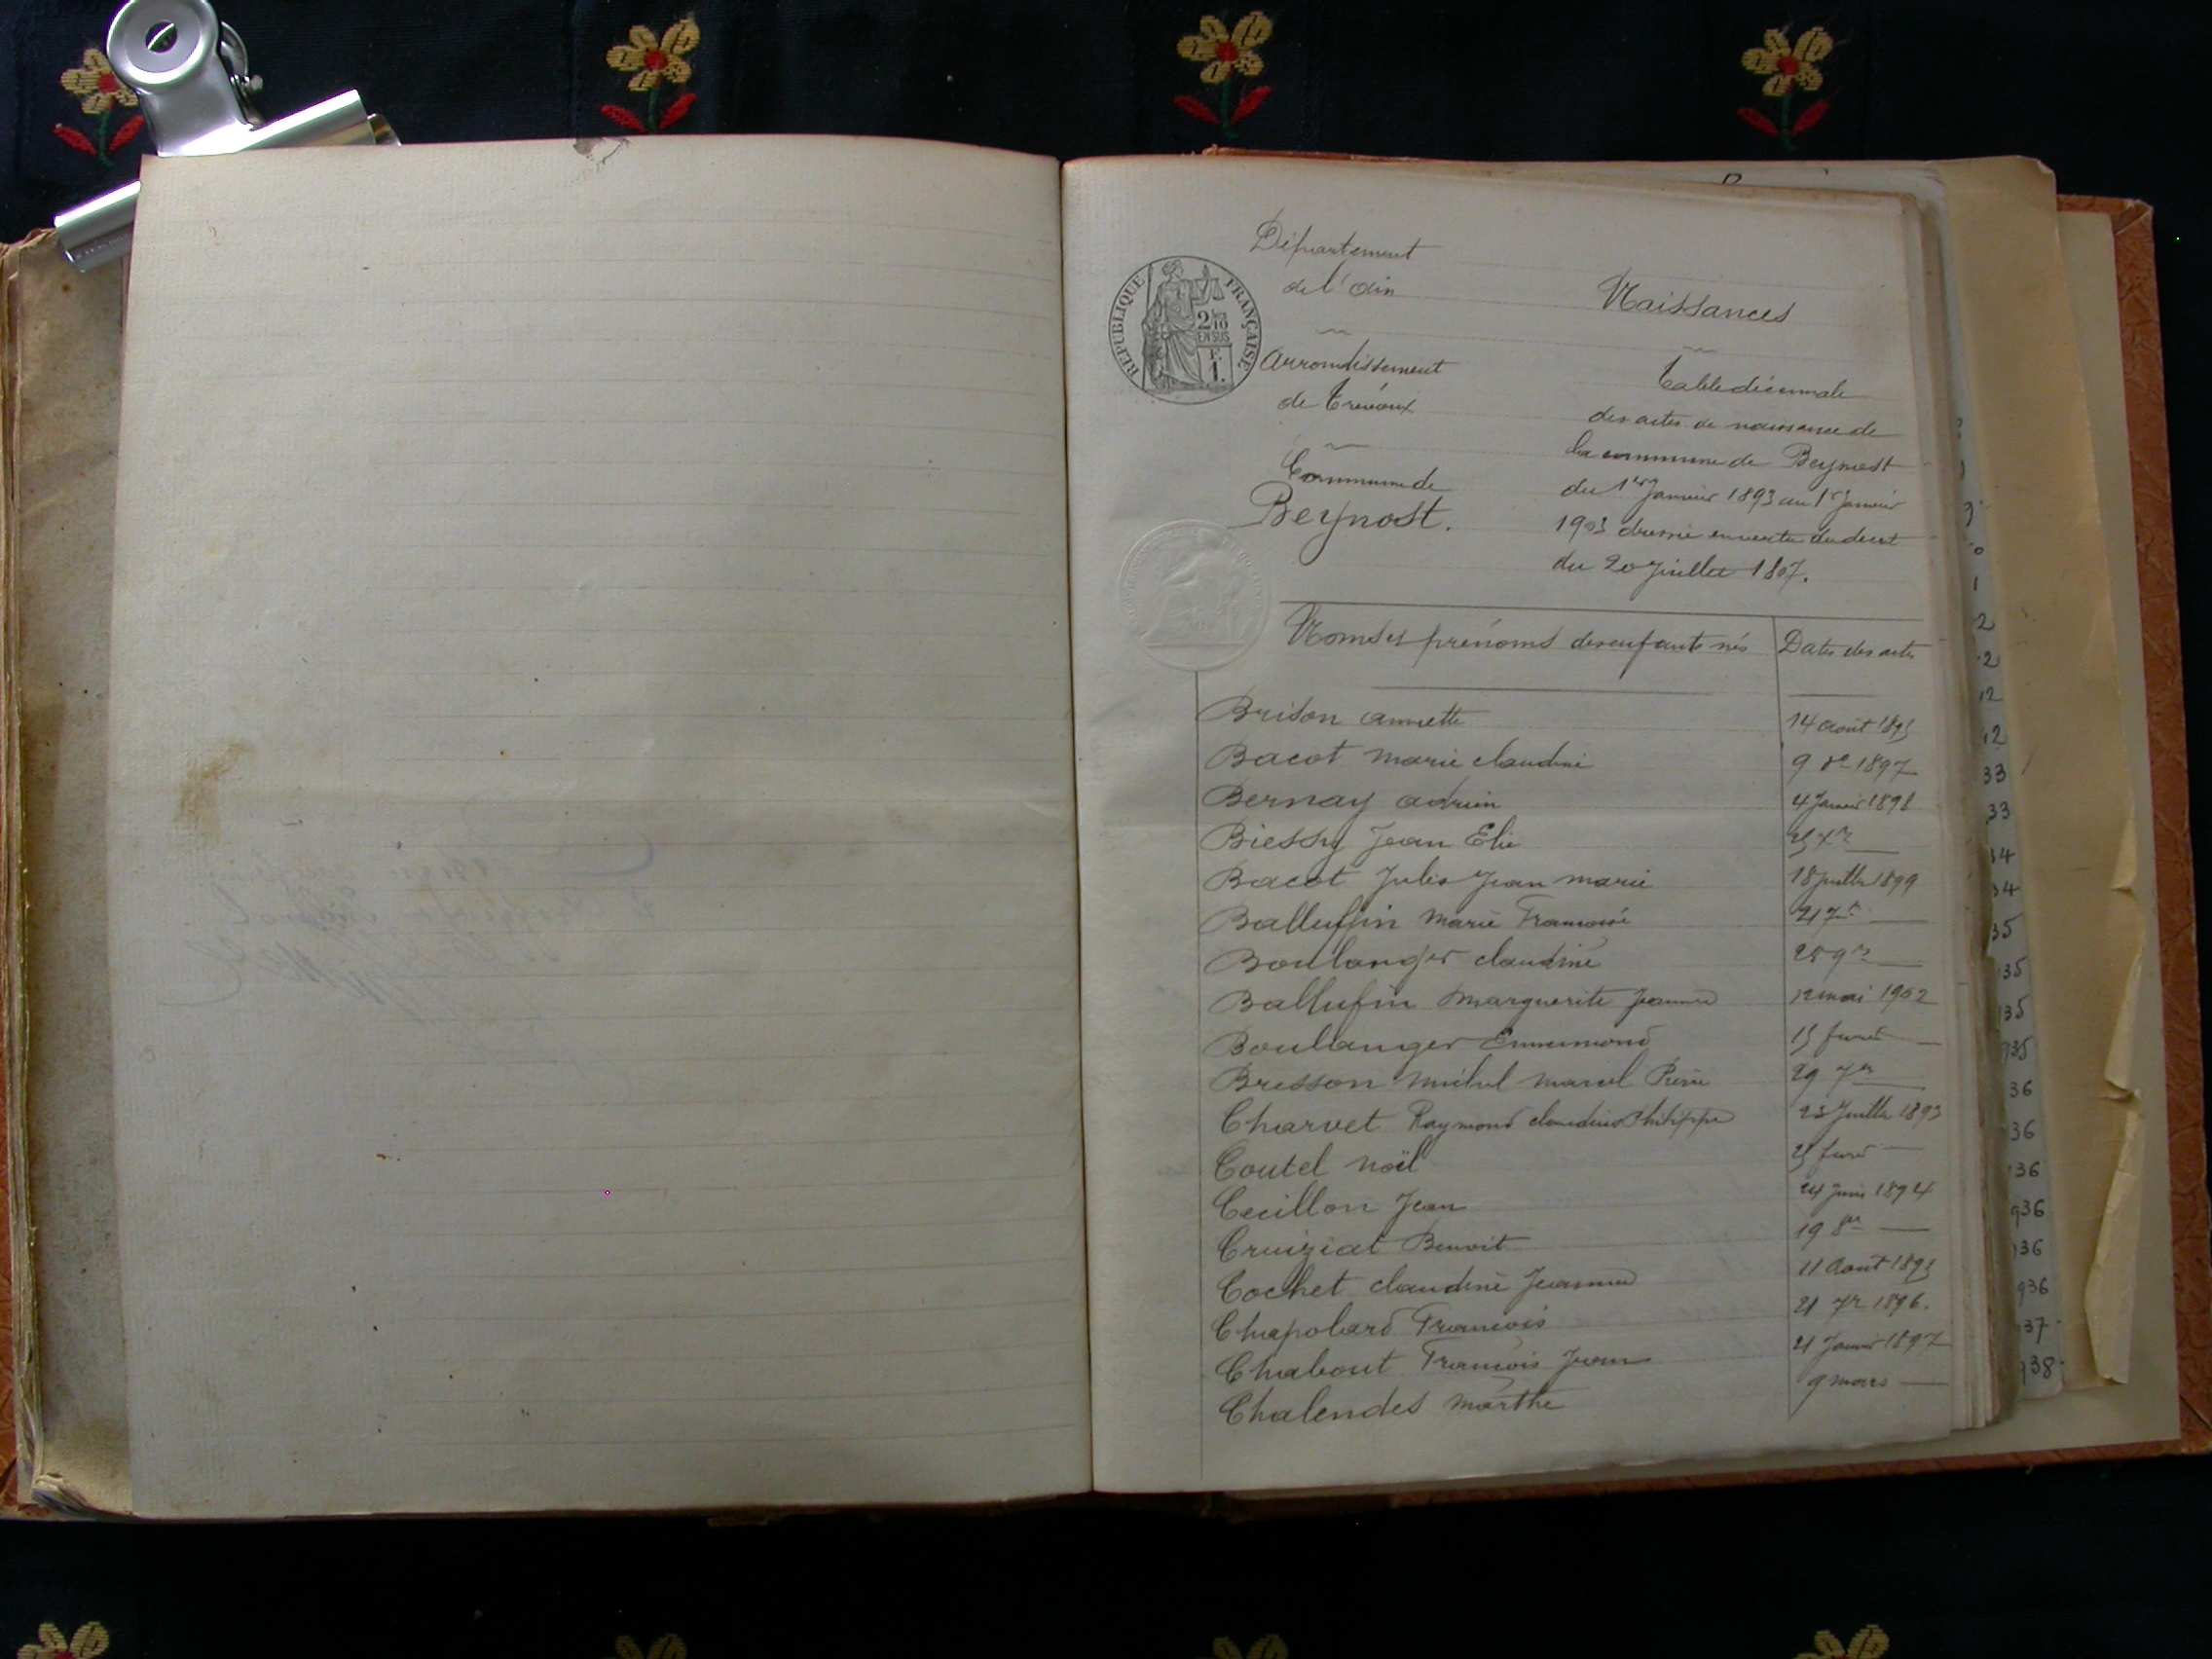 Département
de l'Ain
REPUBLIQUE FRANÇAISE
2/10
EN SUS
F.
1.
Arrondissement
de Trévoux
Commune de
Beynost.
Naissances
Table décennale
des actes de naissance de
la commune de Beynost
du 1er Janvier 1893 au 1er Janvier
1903 dressée en vertu du decret
du 20 Juillet 1807.
Noms et prénoms des enfants nés Dates des actes
Brison Annette 14 Août 1893
Bacot Marie Claudine 9 1897
Bernay Adrien 4 Janvier 1898
Biessy Jean Elie
Bacot Jules Jean Marie 18 Juillet 1899
Balluffin Marie Françoise 21 7re
Boulanger Claudine 28 9re
Ballufin Marguerite Jeanne 12 mai 1902
Boullanger Ennemond 15
Bresson Michel Marcel Pierre 29
Charvet Raymond Claudius Philippe 23 Juillet 1893
Coutel Noël
Cecillon Jean 24 Juin 1894
Cruiziat Benoit 19 8re
Cochet Claudine Jeanne 11 Août 1895
Chapolard François 21 7re 1896.
Chabout François Jean 21 Janvier 1897
Chalendes Marthe 9 mars